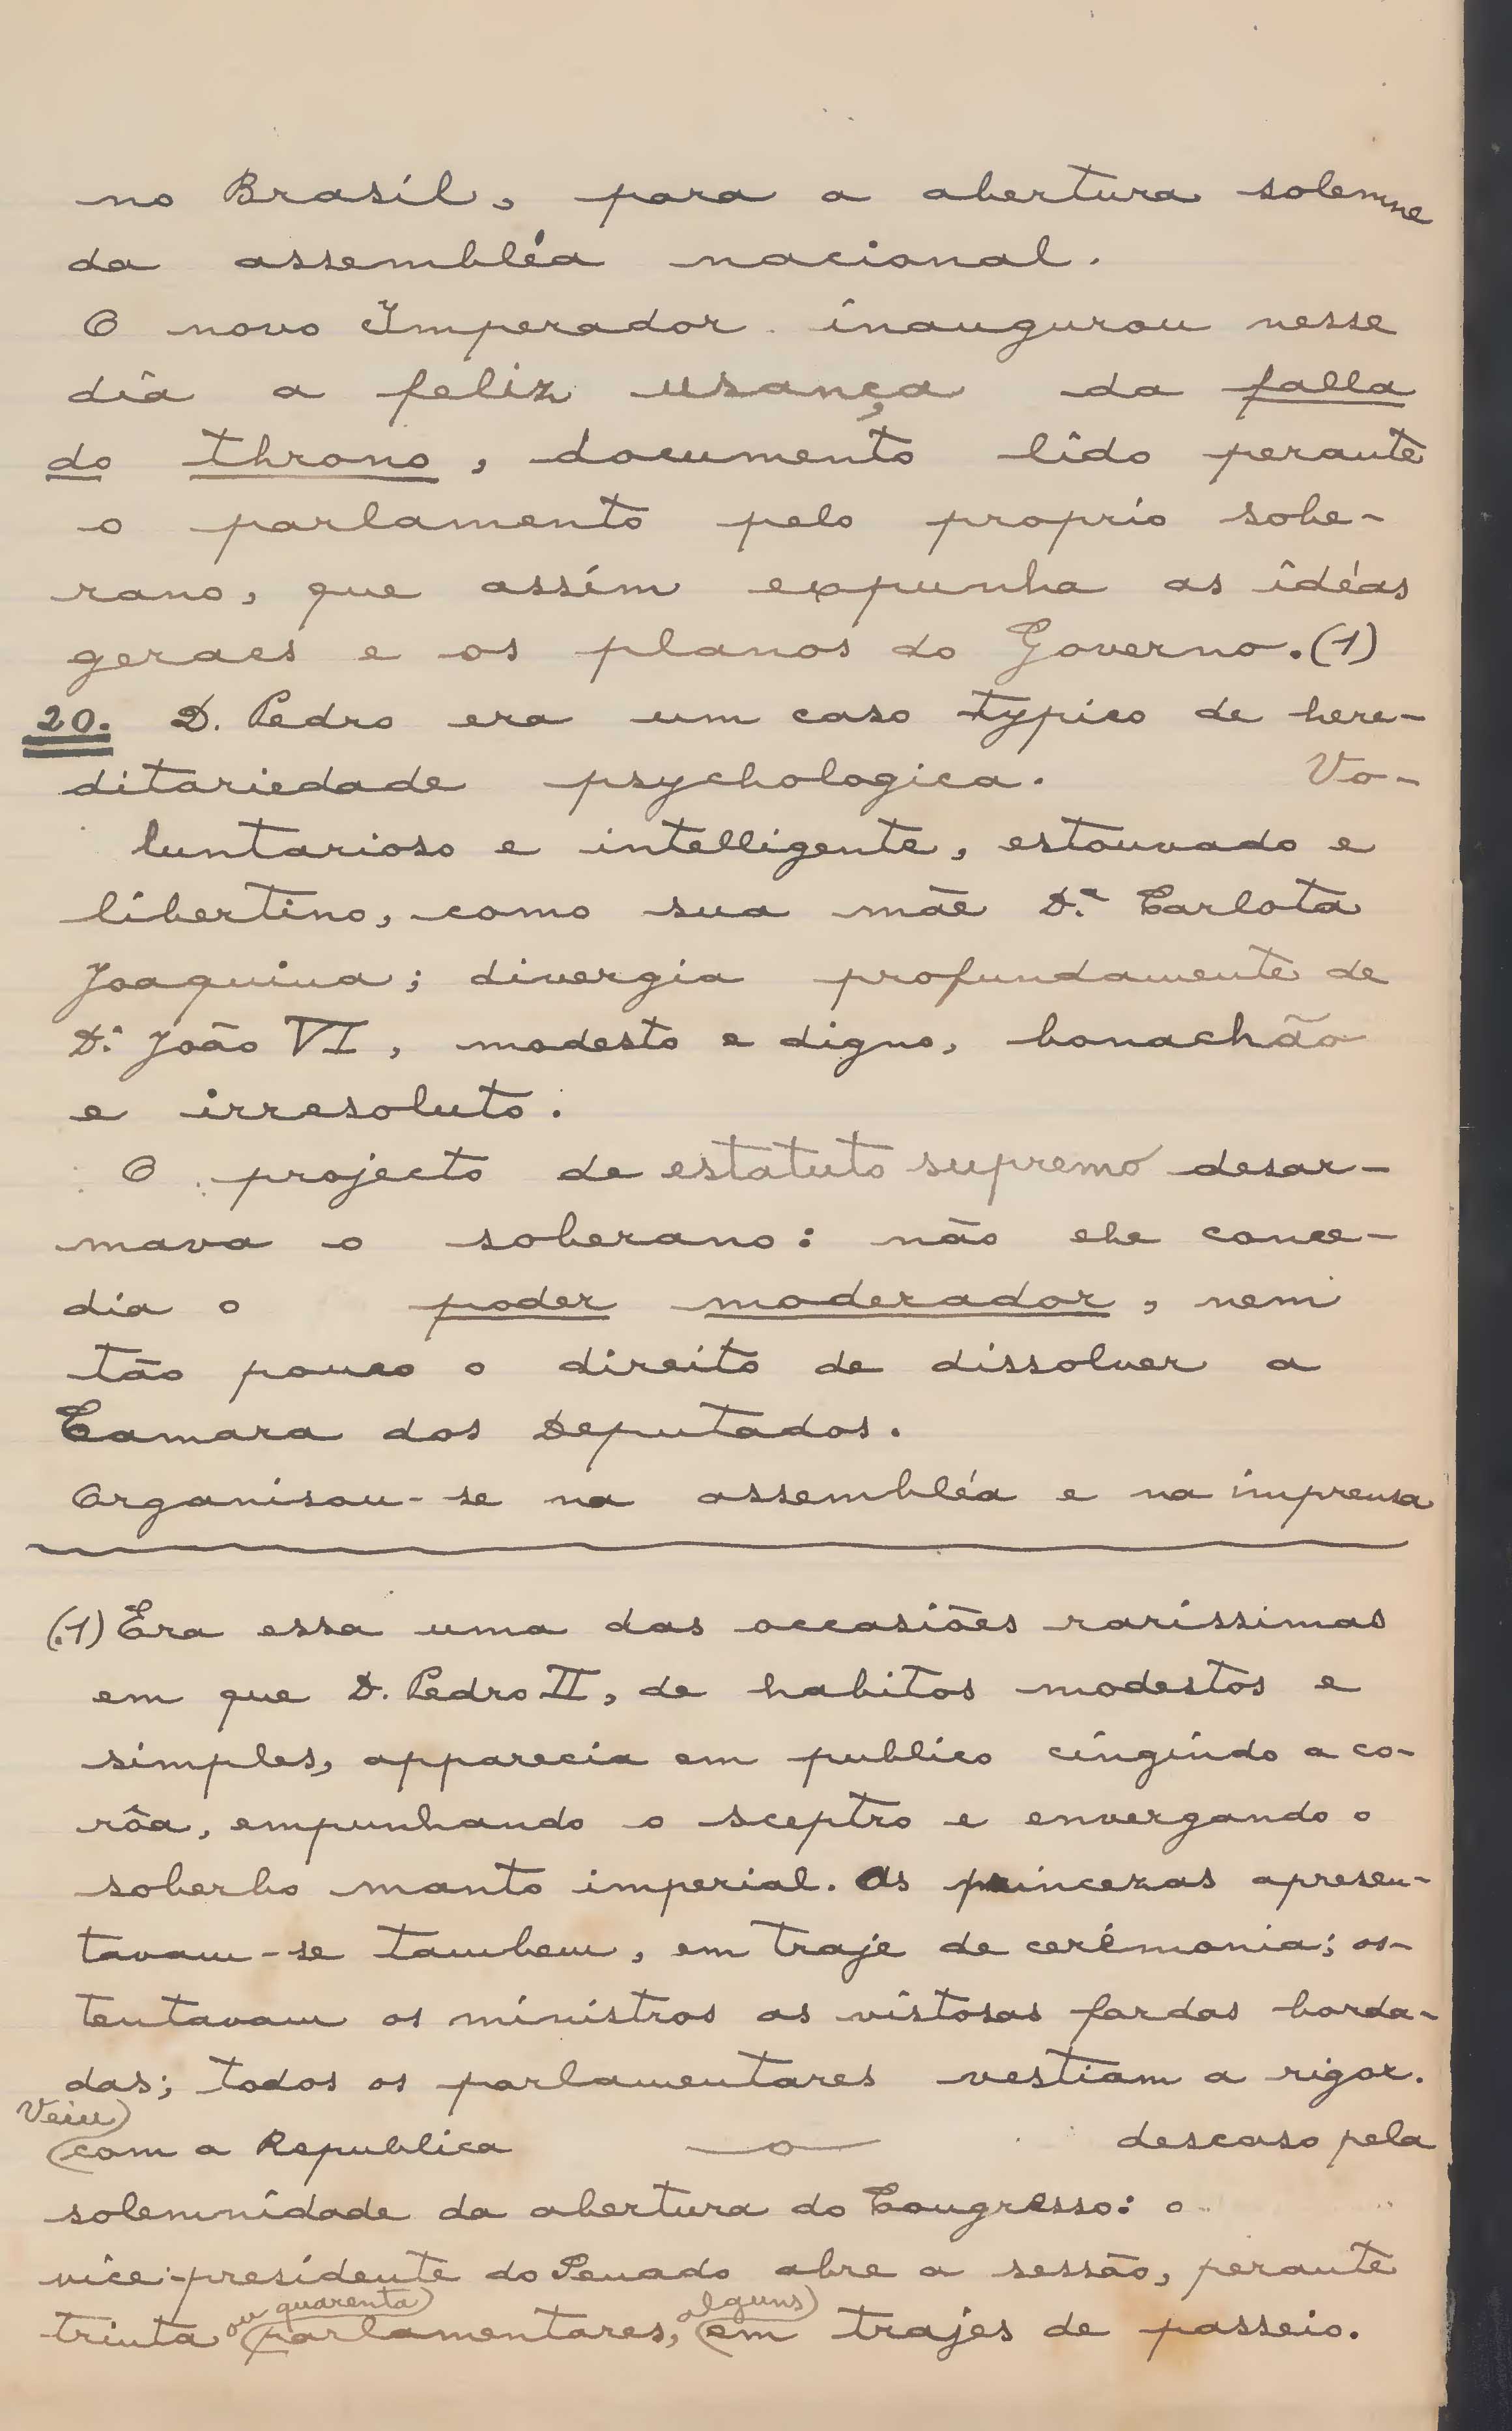 no Brasil, para a abertura solemne
da assembléa nacional.
O novo Imperador inaugurou nesse
dia a feliz usança da falla
do throno, documento lido perante
o parlamento pelo proprio sobe-
rano, que assim expunha as idéas
geraes e os planos do Governo. (1)
20. D. Pedro era um caso typico de here-
ditariedade psychologica. Vo-
luntarioso e intelligente, estouvado e
libertino, como sua mãe D.ª Carlota
Joaquina; divergia profundamente de
D. João VI, modesto e digno, bonachão
e irresoluto.
O projecto de estatuto supremo desar-
mava o soberano: não lhe conce-
dia o poder moderador, nem
tão pouco o direito de dissolver a
Camara dos Deputados.
Organisou-se na assembléa e na imprensa
(1) Era essa uma das occasiões rarissimas
em que D. Pedro II, de habitos modestos e
simples, apparecia em publico cingindo a co-
rôa, empunhando o sceptro e envergando o
soberbo manto imperial. As princezas apresen-
tavam-se tambem, em traje de cerémonia; os-
tentavam os ministros as vistosas fardas borda-
das; todos os parlamentares vestiam a rigor.
Veiu
com a Republica —o— descaso pela
solemnidade da abertura do Congresso: o
vice-presidente do Senado abre a sessão, perante
ou quarenta alguns
trinta parlamentares, em trajes de passeio.